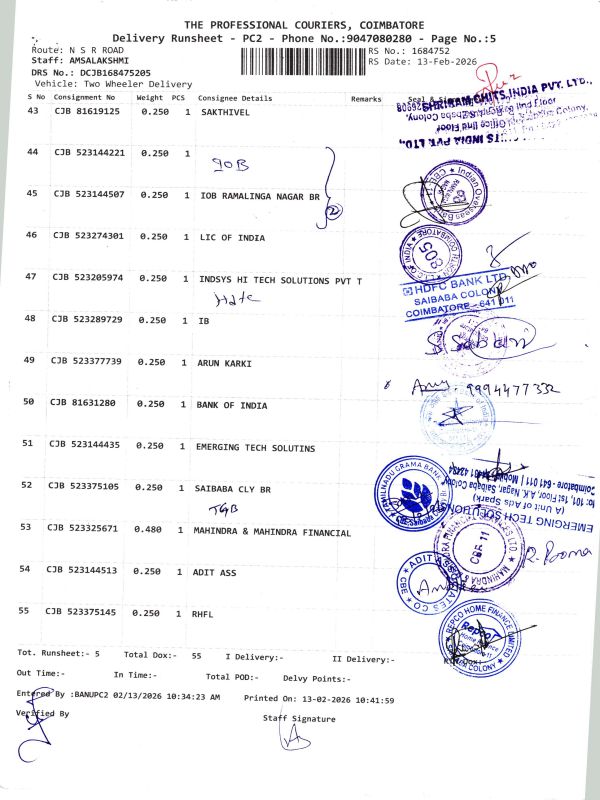 THE PROFESSIONAL COURIERS, COIMBATORE
Delivery Runsheet - PC2 - Phone No.:9047080280 - Page No.:5
Route: N S R ROAD
RS No.: 1684752
Staff: AMSALAKSHMI
RS Date: 13-Feb-2026
DRS No.: DCJB168475205
Vehicle: Two Wheeler Delivery
S No Consignment No Weight PCS Consignee Details Remarks Seal &
43 CJB 81619125 0.250 1 SAKTHIVEL
SHRIRAM CHITS INDIA PVT. LTD.,
44 CJB 523144221 0.250 1
IOB
45 CJB 523144507 0.250 1 IOB RAMALINGA NAGAR BR
2
Indian Overseas Bank
46 CJB 523274301 0.250 1 LIC OF INDIA
COIMBATORE
47 CJB 523205974 0.250 1 INDSYS HI TECH SOLUTIONS PVT T
HDFC BANK LTD
SAIBABA COLONY
COIMBATORE - 641 011
48 CJB 523289729 0.250 1 IB
49 CJB 523377739 0.250 1 ARUN KARKI
9994477332
50 CJB 81631280 0.250 1 BANK OF INDIA
51 CJB 523144435 0.250 1 EMERGING TECH SOLUTINS
EMERGING TECH SOLUTIONS
(A Unit of Ads Spark)
No: 101, 1st Floor, A.K. Nagar, Saibaba Colony
52 CJB 523375105 0.250 1 SAIBABA CLY BR
TGB
TAMILNADU GRAMA BANK
53 CJB 523325671 0.480 1 MAHINDRA & MAHINDRA FINANCIAL
CBE 11
54 CJB 523144513 0.250 1 ADIT ASS
ADIT ASSOCIATES
CBE
55 CJB 523375145 0.250 1 RHFL
REPCO HOME FINANCE LIMITED
Repco
Home Finance
Tot. Runsheet:- 5 Total Dox:- 55 I Delivery:- II Delivery:-
Out Time:- In Time:- Total POD:- Delvy Points:-
Entered By :BANUPC2 02/13/2026 10:34:23 AM Printed On: 13-02-2026 10:41:59
Verified By
Staff Signature